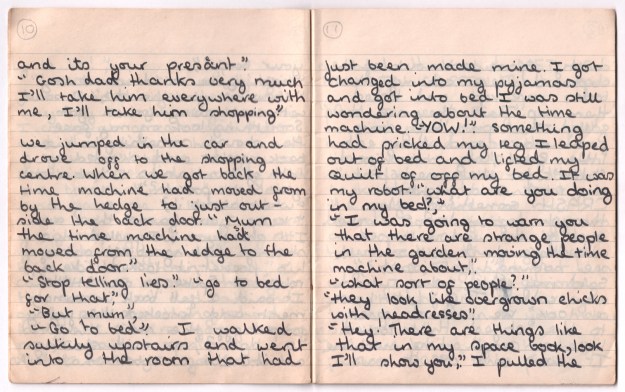 10
and its your present"
"Gosh dad thanks very much
I'll take him everywhere with
me, I'll take him shopping"
we jumped in the car and
drove off to the shopping
centre. When we got back the
time machine had moved from
by the hedge to just out-
side the back door. "Mum
the time machine had
moved from the hedge to the
back door."
"Stop telling lies." "go to bed
for that",
"But mum",
"Go to bed". I walked
sulkily upstairs and went
into the room that had
11
just been made mine. I got
changed into my pyjamas
and got into bed I was still
wondering about the time
machine. "YOW!" something
had pricked my leg I leaped
out of bed and lifted my
quilt of off my bed. It was
my robot. "what are you doing
in my bed?",
"I was going to warn you
that there are strange people
in the garden moving the time
machine about,"
"what sort of people?"
"they look like overgrown chicks
with headresses!"
"Hey! There are things like
that in my space book, look
I'll show you," I pulled the